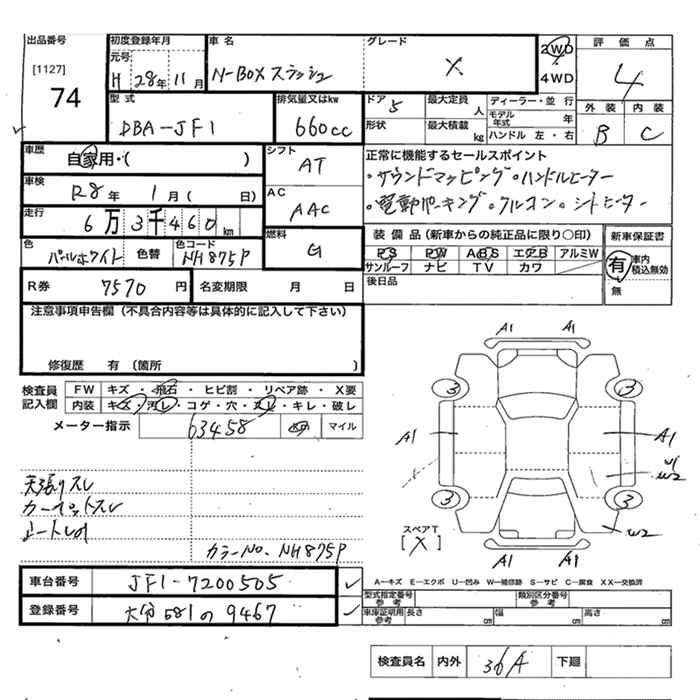 出品番号 初度登録年月 車名 グレード 2WD 評価点
[1127] 元号 H 28年 11月 N-BOX スラッシュ X 4WD 4
74
型式 排気量又はkw ドア 5 最大定員 人 ディーラー・並行 外装 内装
DBA-JF1 660cc 形状 最大積載 kg モデル年式 年 B C
ハンドル 左・右
車歴 自家用・( ) シフト AT 正常に機能するセールスポイント
車検 R8年 1月( 日) AC AAC ・サウンドマッピング。ハンドルヒーター
走行 6万3千460km 。電動パーキング。クルコン。シートヒーター
燃料 G 装備品(新車からの純正品に限り○印) 新車保証書
色 パールホワイト 色替 色コード NH875P PS PW ABS エアB アルミW 有 車内積込無効
サンルーフ ナビ TV カワ 無
R券 7570円 名変期限 月 日 後日品
注意事項申告欄(不具合内容等は具体的に記入して下さい)
修復歴 有 (箇所 )
検査員記入欄 FW キズ・飛石・ヒビ割・リペア跡・X要
内装 キズ・汚レ・コゲ・穴・スレ・キレ・破レ
メーター指示 63458 km マイル
天張りスレ
カーペットスレ
カラーNo. NH875P
A1 A1
3 3
A1 A1
U1
W2
3 3
W2
スペアT
[X]
A1 A1
車台番号 JF1-7200505
A-キズ E-エクボ U-凹み W-補修跡 S-サビ C-腐食 XX-交換済
登録番号 大分 581 の 9467
型式指定番号 参考 類別区分番号 参考
車庫証明用 参考 長さ cm 幅 cm 高さ cm
検査員名 内外 36A 下廻